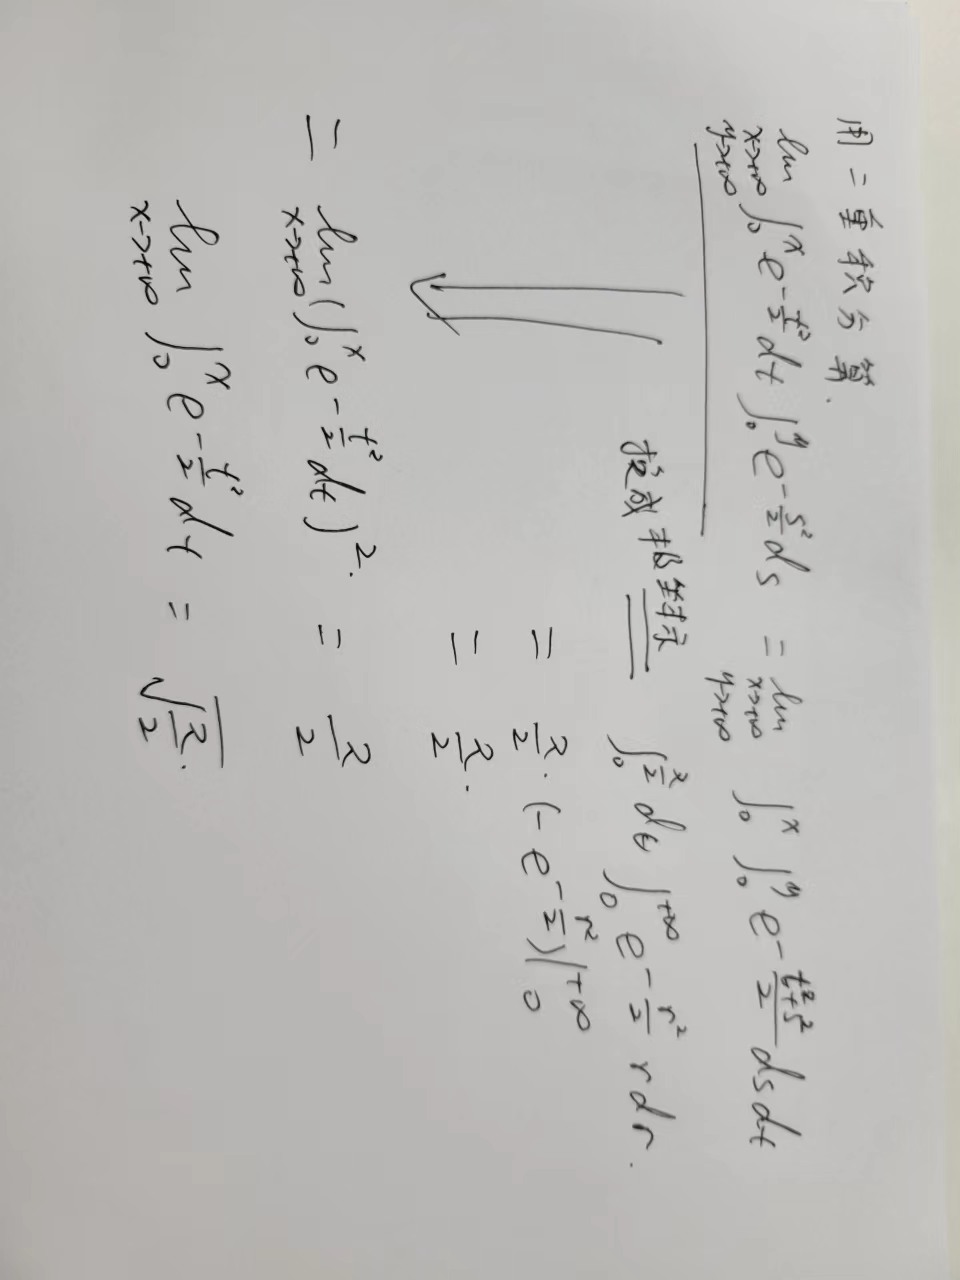 用二重积分算.
lim x->+∞ y->+∞ ∫₀ˣ e^{-t²/2} dt ∫₀ʸ e^{-s²/2} ds = lim x->+∞ y->+∞ ∫₀ˣ ∫₀ʸ e^{-(t²+s²)/2} ds dt
换成极坐标 = ∫₀^{π/2} dθ ∫₀^{+∞} e^{-r²/2} r dr.
= π/2 · (-e^{-r²/2})|₀^{+∞}
= π/2.
= lim x->+∞ (∫₀ˣ e^{-t²/2} dt)². = π/2
lim x->+∞ ∫₀ˣ e^{-t²/2} dt = √(π/2).